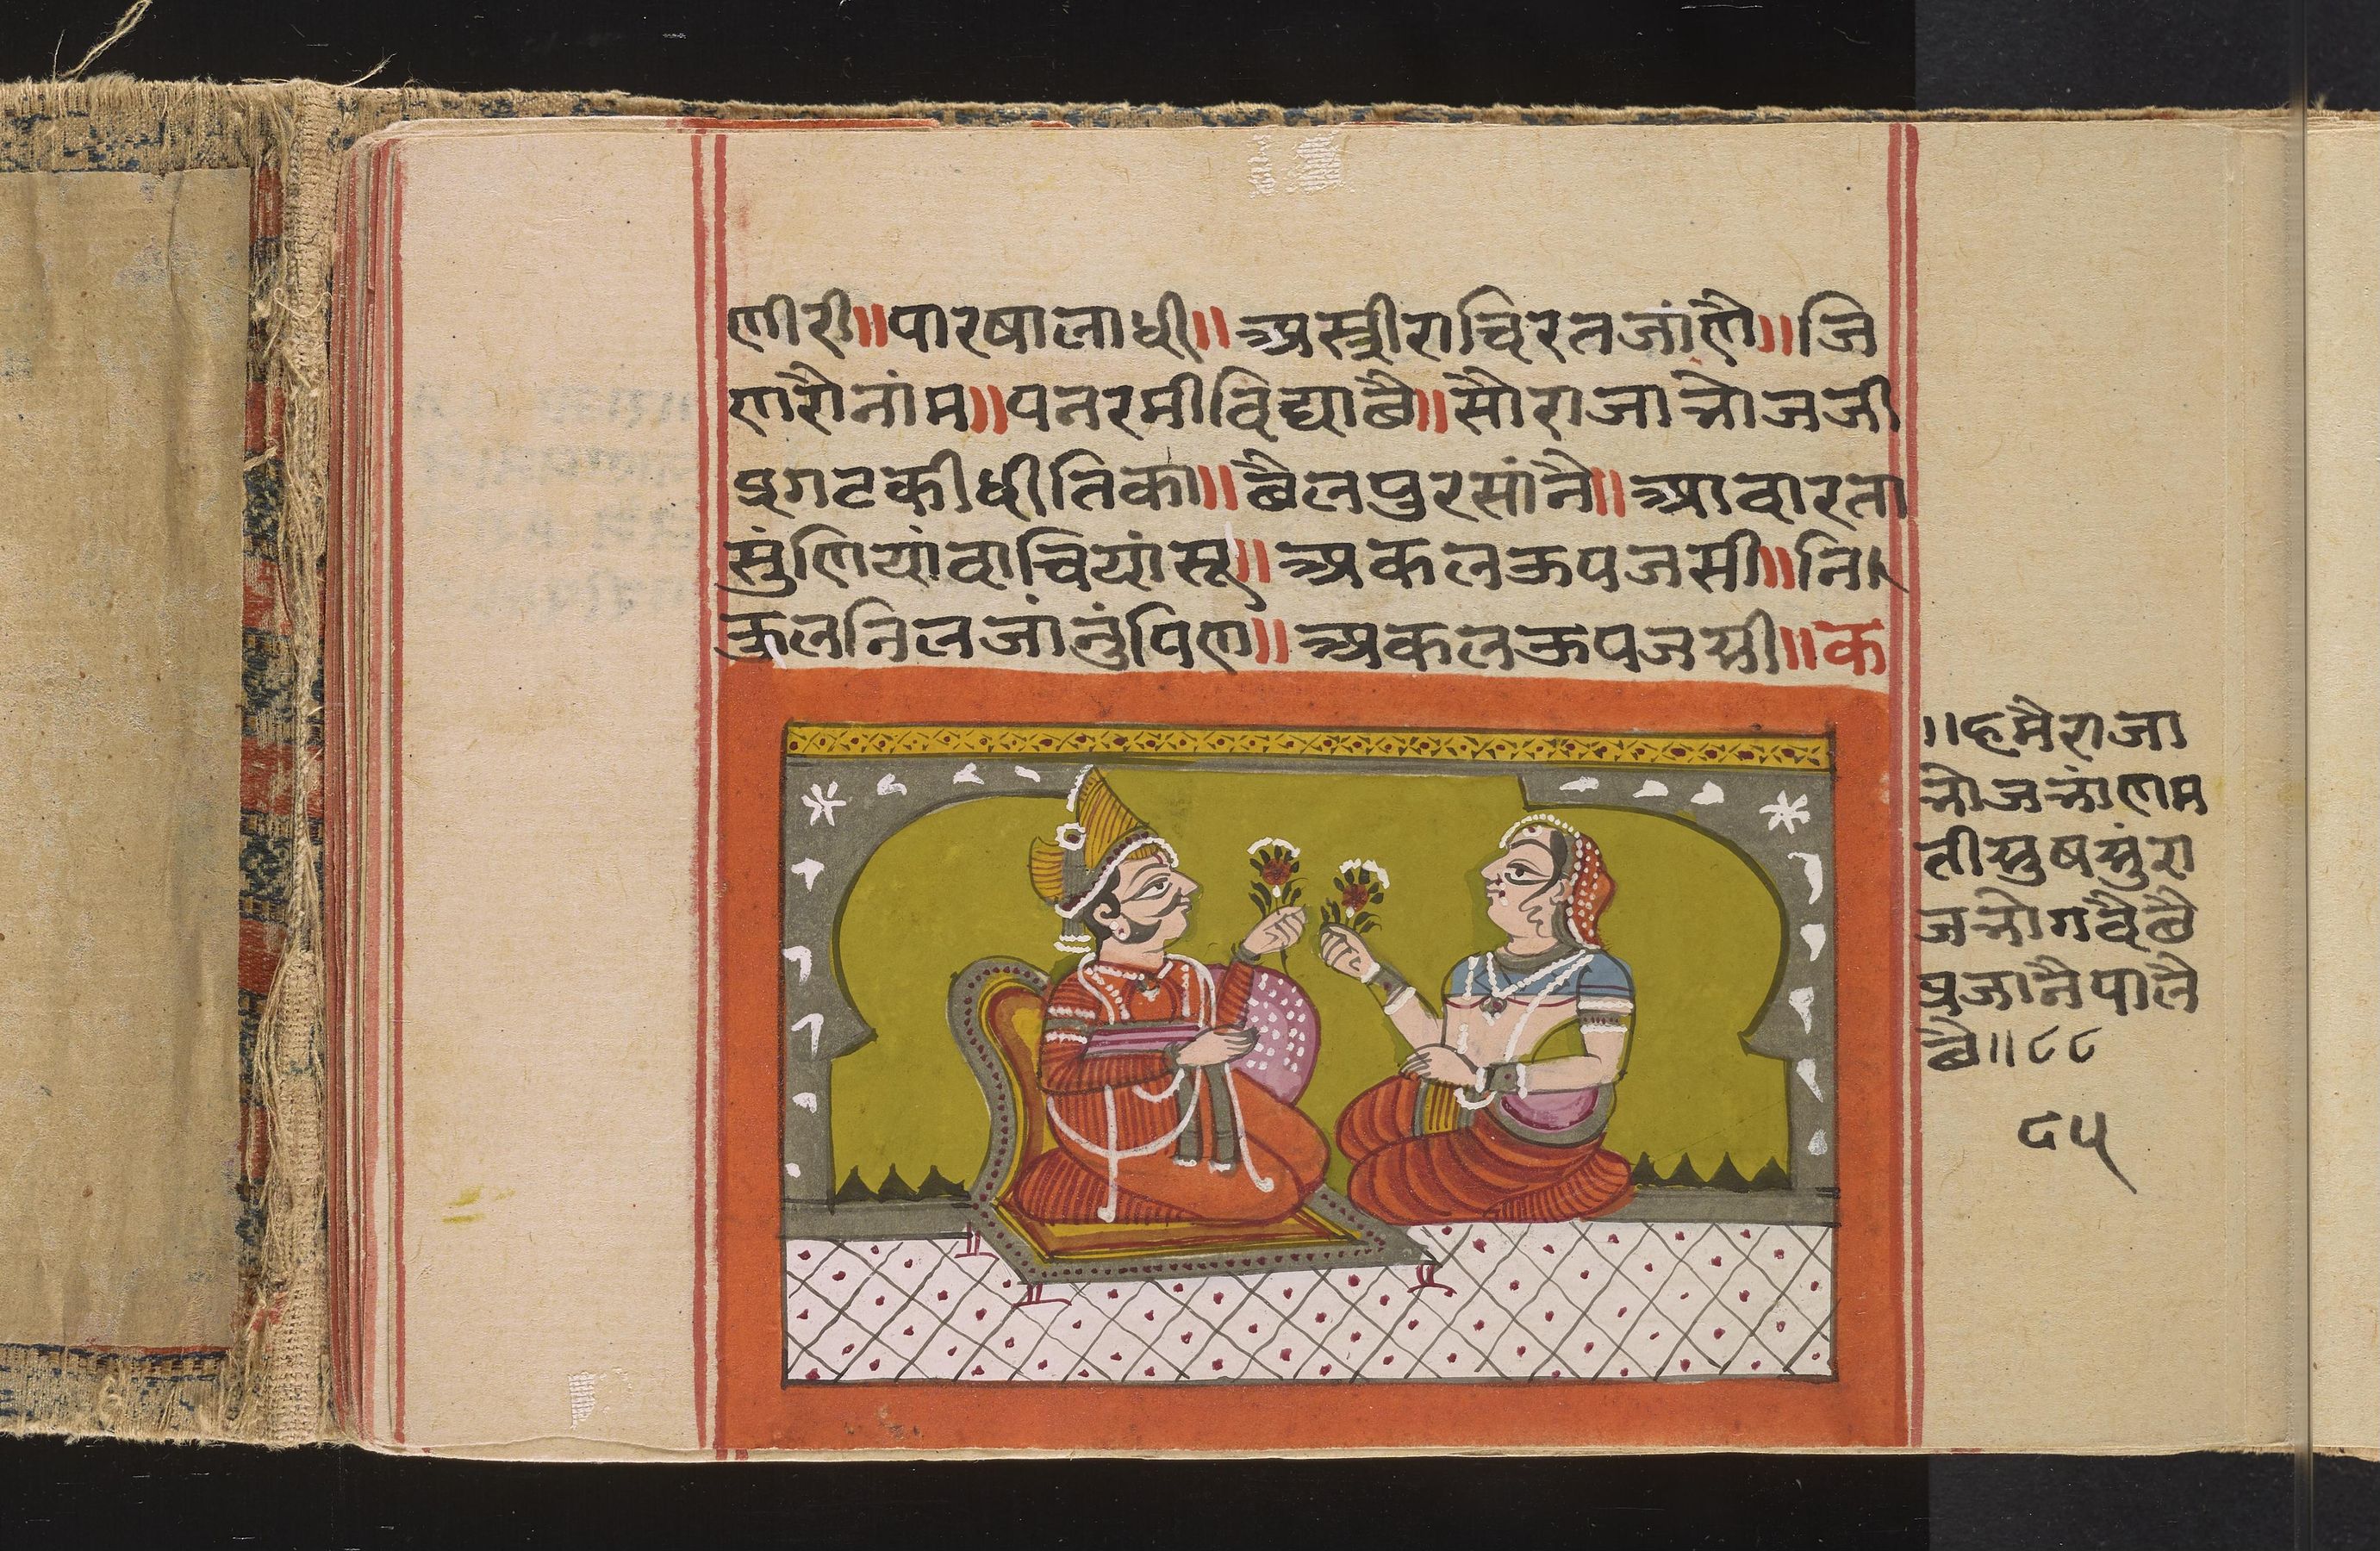 णीरी॥पारषालाधी॥अस्त्रीराचिरतजांणै॥जि
णरौनांम॥पनरमीविद्याछै॥सौराजाभोजजी
प्रगटकीधीतिका॥छैलपुरसांनै॥आवारता
सुंणियांवाचियांसू॥अकलऊपजसी॥नि
कलनिलजांनुंपिण॥अकलऊपजसी॥क
॥हमैराजा
भोजभांणम
तीसुषसुंरा
जभोगवैछै
प्रजानैपालै
छै॥८८
८५